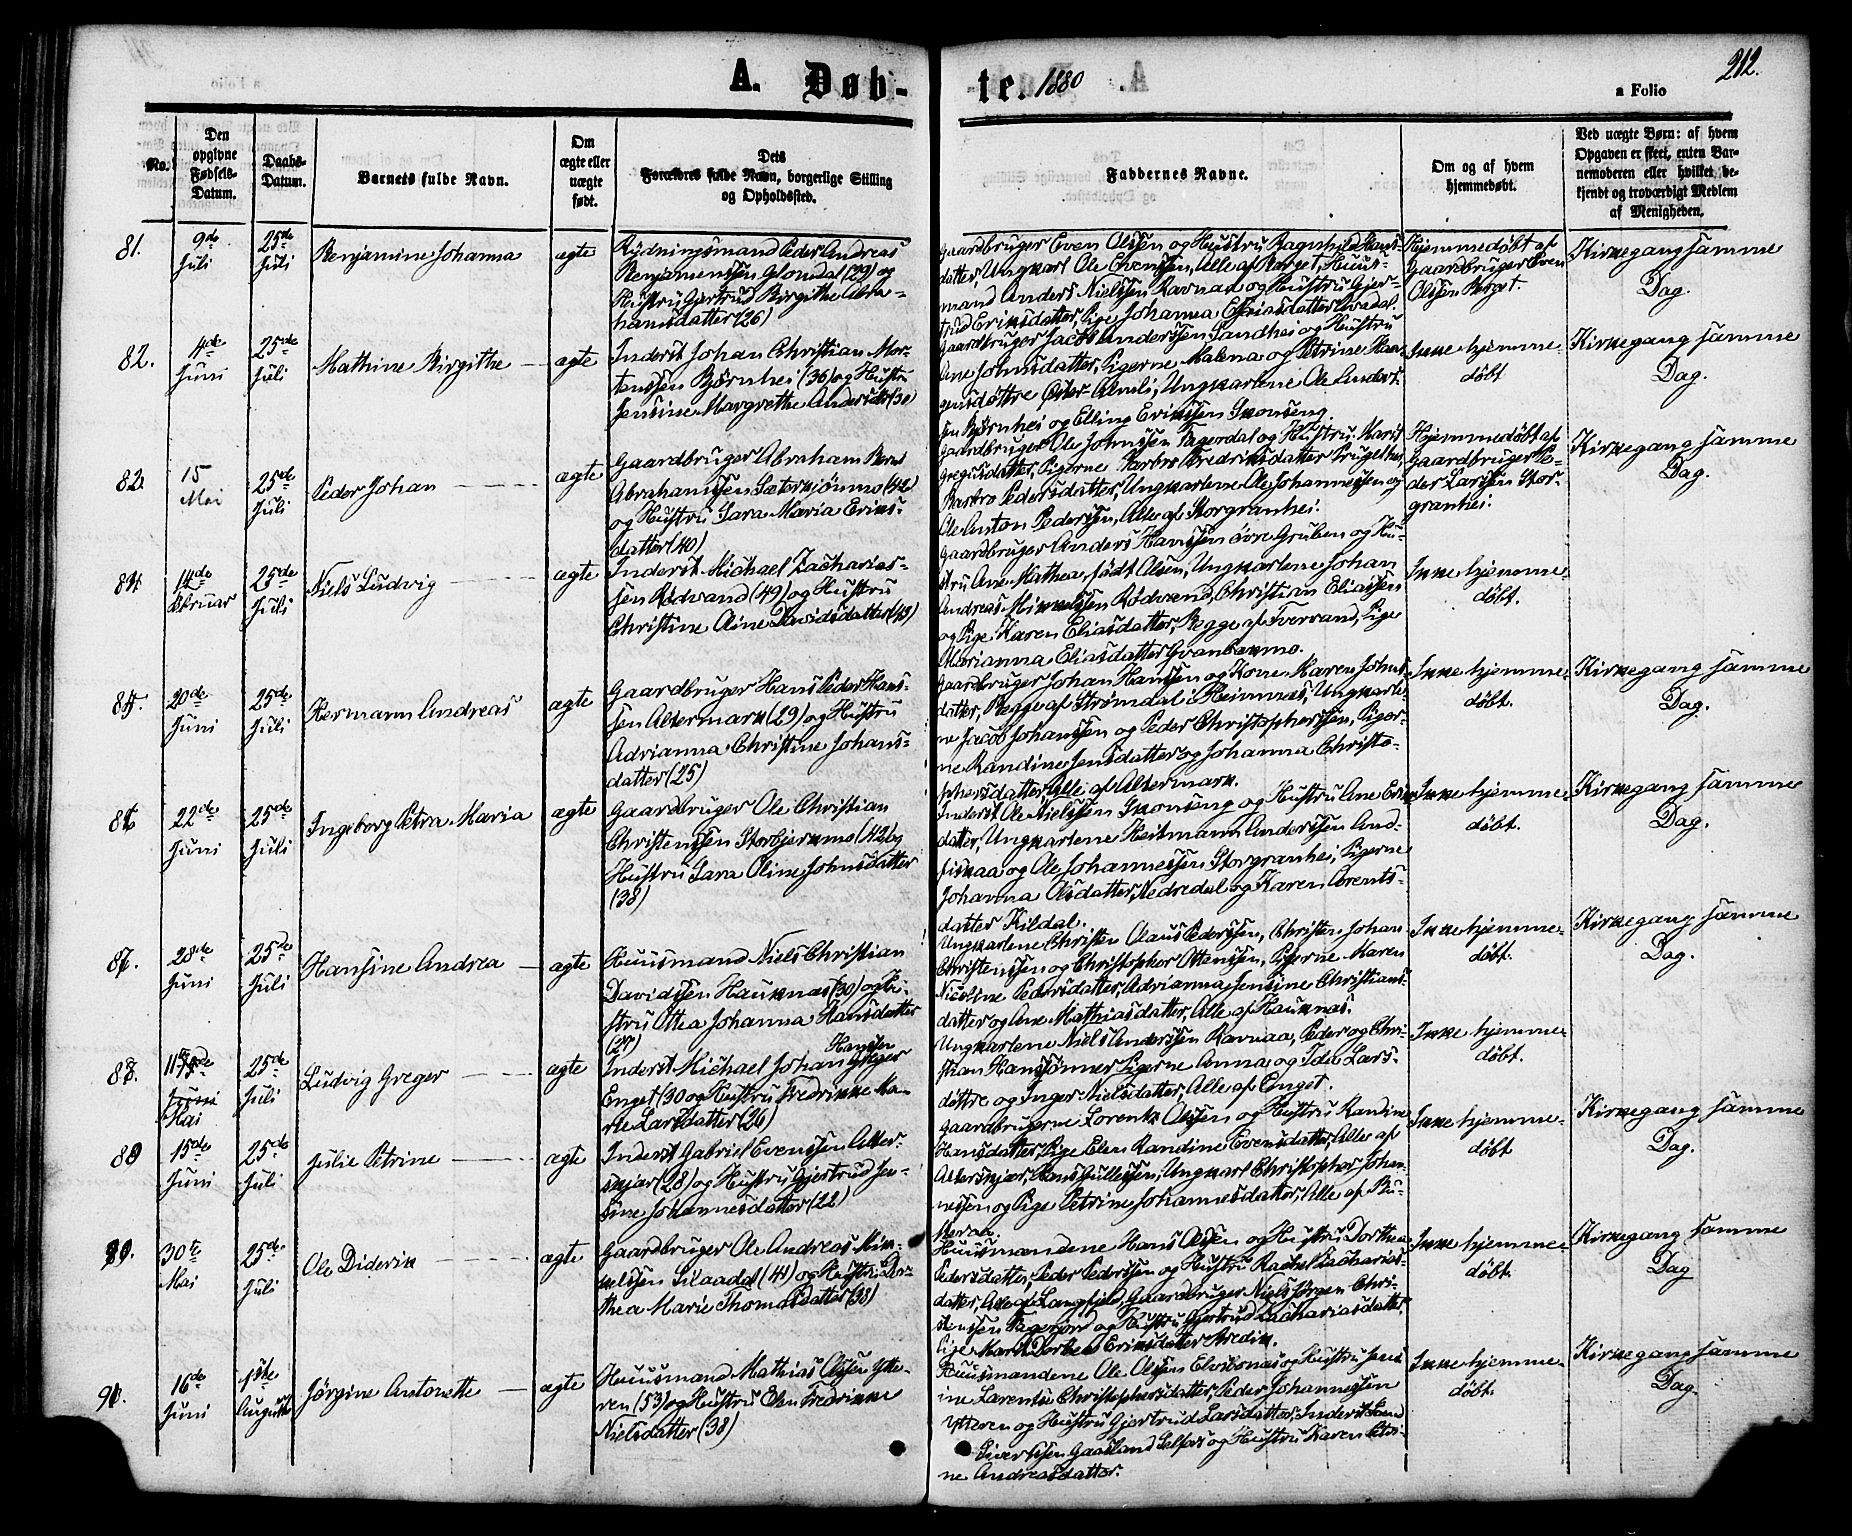 212.
A. Døb-
te. 1880
a Folio
No.
Den opgivne Fødsels-Datum.
Daabs-Datum.
Barnets fulde Navn.
Om ægte eller uægte født.
Dets Forældres fulde Navn, borgerlige Stilling og Opholdssted.
Faddernes Navne.
Om og af hvem hjemmedøbt.
Ved uægte Børn: af hvem Opgaven er skeet, enten Barnemoderen eller hvilket bekjendt og troværdigt Medlem af Menigheden.
81.
9de Juli
25de Juli
Benjamine Johanna
ægte
Rydningsmand Peder Andreas
Benjamenssen Glomdal (29) og
Hustru Gjertrud Birgithe Abra-
hamsdatter (26)
Gaardbruger Even Olssen og Hustru Ragnhild Hans-
datter, Ungkarl Ole Evenssen, Alle af Berget, Huus-
mand Anders Nielssen Ravnaa og Hustru Gjer-
trud Eriksdatter, Pige Johanna Esaiasdatter
Hjemmedøbt af
Gaardbruger Even
Olssen Berget.
Kirkegang samme
Dag.
82.
4de Juni
25de Juli
Mathine Birgithe
ægte
Inderst Johan Christian Mor-
tenssen Bjørnhei (36) og Hustru
Jensine Margrethe Andersdtr (30)
Gaardbruger Jacob Anderssen Sandhei og Hustru
Ane Johnsdatter, Pigerne Malena og Petrine Haa-
gensdøttre Ungkarlene Ole
sen Bjørnhei og Elling Erikssen Skonseng.
Ikke hjemme-
døbt
Kirkegang samme
Dag.
15 Mai
25de Juli
Peder Johan
ægte
Gaardbruger Abraham Bernt
Abrahamssen Sæterskjønmo (42)
og Hustru Sara Maria Eriks-
datter (40)
Gaardbruger Ole Johnssen Fagerdal og Hustru Marit
Gregusdatter, Pigerne Barbro Fredriksdatter
Barbro Pedersdatter, Ungkarlene Ole Johannessen og
Ole Anton Pederssen, Alle af Storgranhei.
Hjemmedøbt af
Gaardbruger Pe-
der Larssen Stor-
granhei.
Kirkegang samme
Dag.
84.
14de Februar
25de Juli
Niels Ludvig
ægte
Inderst Michael Zacharias-
sen Rødvand (49) og Hustru
Christine Aine Davidsdatter (43)
Gaardbruger Anders Hanssen øvre Gruben og Hu-
stru Ane Mathea født Olsen, Ungkarlene Johan
Andreas Mikkelssen Rødvand, Christian Eliassen
og Pige Karen Eliasdatter, Begge af Tvervand, Pige
Marianna Eliasdatter Granbækmo.
Ikke hjemme-
døbt.
85.
20de Juni
25de Juli
Hermann Andreas
ægte
Gaardbruger Hans Peder Hans-
sen Altermark (29) og Hustru
Adrianna Christine Johans-
datter (25)
Gaardbruger Johan Hanssen og Kone Karen Johns-
datter, Begge af Strømdal i Hemnæs, Ungkarle-
ne Jacob Johanssen og Peder Christopherssen, Piger-
ne Randine Jensdatter og Johanna Christo-
phersdatter, Alle af Altermark.
Ikke hjemme-
døbt.
Kirkegang samme
Dag.
86
22de Juni
25de Juli
Ingeborg Petra Maria
ægte
Gaardbruger Ole Christian
Christenssen Storbjerkmo (42) og
Hustru Sara Oline Johnsdatter
(38)
Inderst Ole Nielssen Skonseng og Hustru Ane Eriks-
datter, Ungkarlene Heitmann Anderssen And-
fiskaa og Ole Johannessen Storgranhei, Pigerne
Johanna Olsdatter, Nedredal og Karen Arents-
datter Kildal.
Ikke hjemme-
døbt.
Kirkegang samme
Dag.
87.
28de Juni
25de Juli
Hansine Andrea
ægte
Huusmand Niels Christian
Davidssen Hauknæs (30) og Hu-
stru Othea Johanna Hansdatter
(27)
Ungkarlene Christen Olaus Pederssen, Christen Johan
Christenssen og Christopher Ottenssen, Pigerne Maren
Nicoline Pedersdatter, Adrianna Jensine Christians-
datter og Ane Mathiasdatter, Alle af Hauknæs.
Ikke hjemme-
døbt.
Kirkegang samme
Dag.
88.
Juni
Mai
25de Juli
Ludvig Greger
ægte
Hanssen
Inderst Michael Johan Greger
Enget (30 og Hustru Fredrikke Ma-
rie Larsdatter (26)
Ungkarlene Niels Anderssen Ravnaa, Peder og Chri-
stian Hanssønner Pigerne Anna og Ida Lars-
døttre og Inger Nielsdatter, Alle af Enget.
Ikke hjemme-
døbt.
15de Juni
25de Juli
Julie Petrine
ægte
Inderst Gabriel Evenssen Alter-
skjær (28) og Hustru Gjertrud Jen-
sine Johannesdatter (22)
Gaardbrugerne Lorents Olssen og Hustru Randine
Hansdatter, Pige Elen Randine Evensdatter, Alle af
Alterskjær, Hans Gullessen, Ungkarl Christopher Johan-
nessen og Pige Petrine Johannesdatter, Alle af
Ikke hjemme-
døbt
Kirkegang samme
Dag.
30te Mai
25de Juli
Ole Diderik
ægte
Gaardbruger Ole Andreas Mik-
kelssen Lilaadal (41) og Hustru Dor-
thea Marie Thomasdatter (38)
Huusmandene Hans Olssen og Hustru Dorthea
Pedersdatter, Peder Pederssen og Hustru Rachel Zacharias-
datter, Alle af Langfjeld, Gaardbruger Niels Jørgen Chri-
stenssen og Hustru Gjertrud Zachariasdatter
Pige Eriksdatter
Ikke hjemme-
døbt.
Kirkegang samme
Dag
91.
16de Juni
1ste August
Jørgine Antonette
ægte
Huusmand Mathias Olssen Ytte-
ren (53) og Hustru Elen Fredrikke
Nielsdatter (38)
Huusmandene Ole Olssen og Hustru
ine Larentse Christophersdatter, Peder Johannessen
Ytteren og Hustru Gjertrud Larsdatter, Inderst
Sivertssen Gaasland Selfors og Hustru Karen
ne Andreasdatter.
Ikke hjemme-
døbt.
Kirkegang samme
Dag.